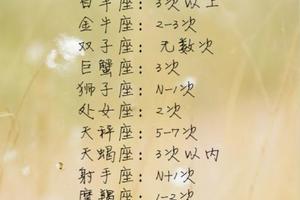 白羊座：3次以上
金牛座：2-3次
双子座：无数次
巨蟹座：3次
狮子座：N-1次
处女座：2次
天秤座：5-7次
天蝎座：3次以内
射手座：N+1次
摩羯座：1-2次